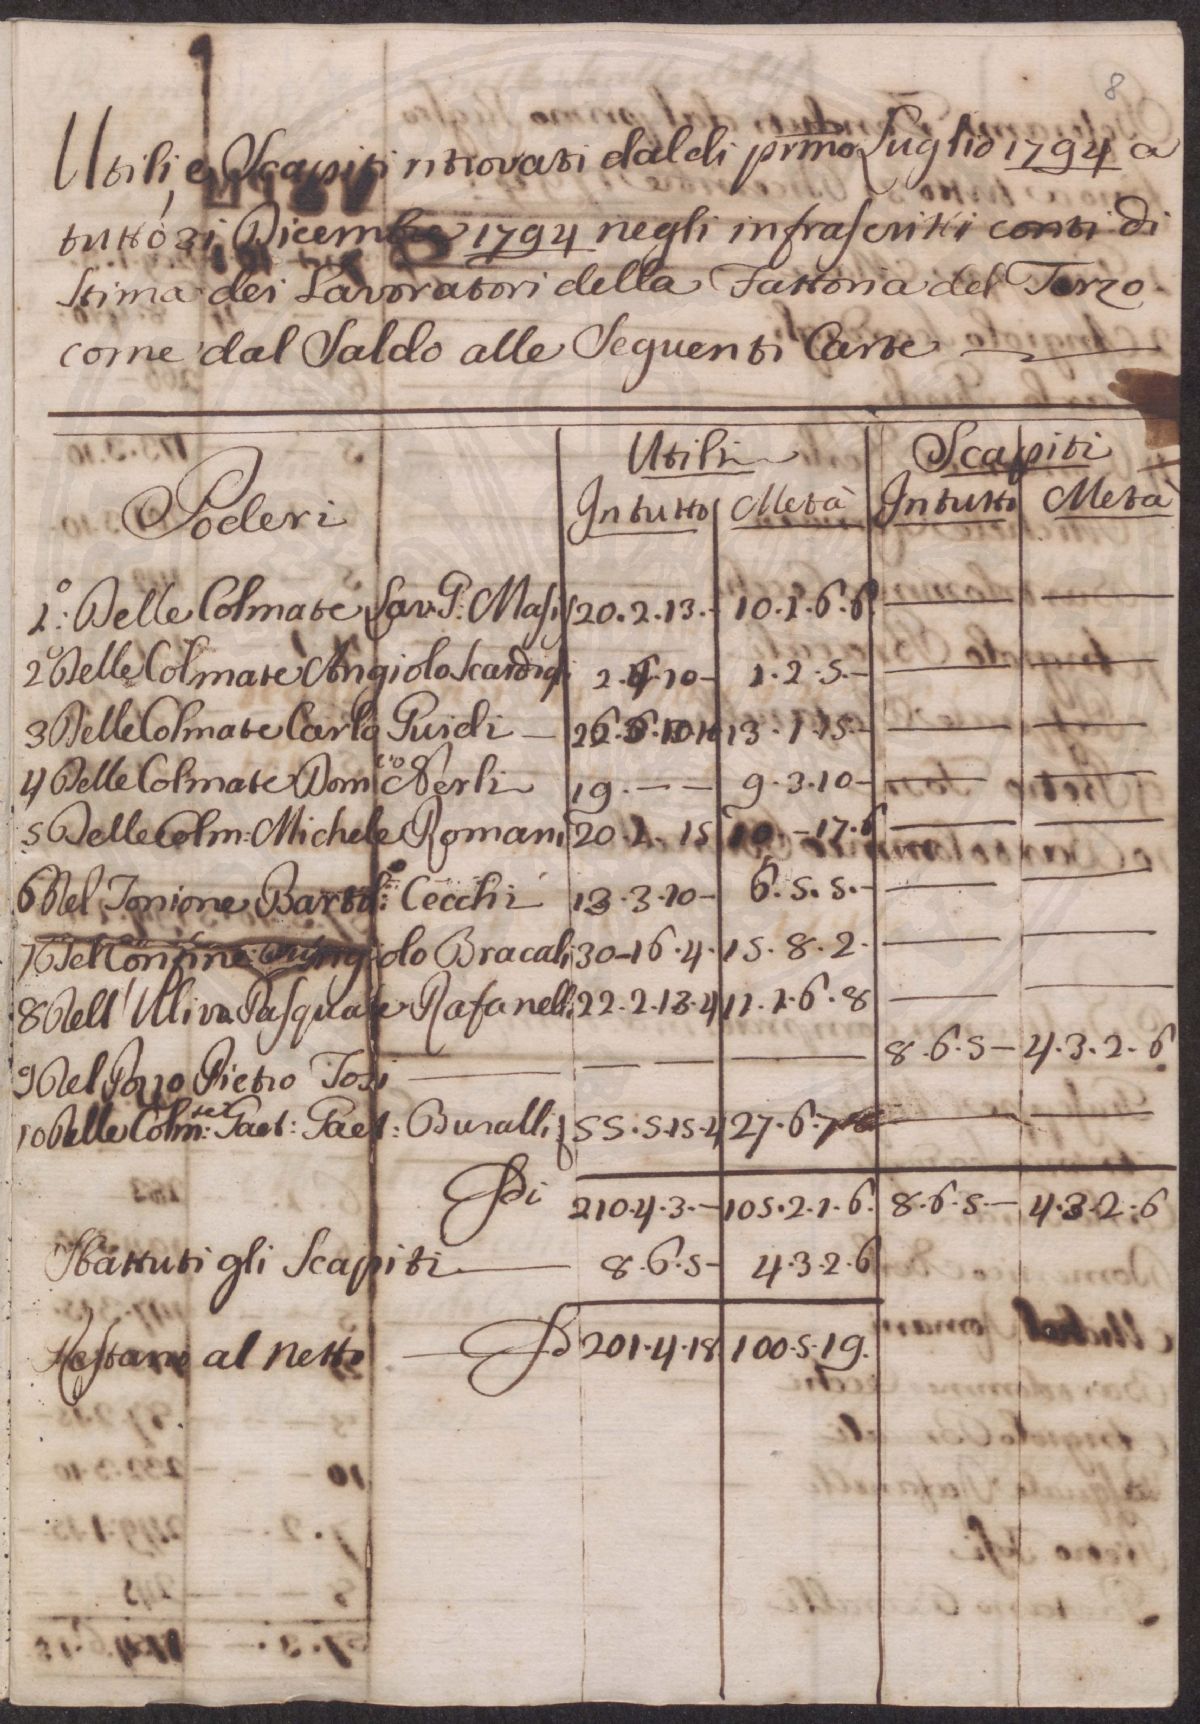 8
Utili, e Scapiti ritrovati dal dì primo Luglio 1794 a
tutto 31 Dicembre 1794 negli infrascritti conti di
Stima dei Lavoratori della Fattoria del Terzo
come dal Saldo alle Seguenti Carte
Poderi Utili Scapiti
In tutto Metà In tutto Metà
1.° Delle Colmate Lav. G: Masi 20.2.13.- 10.1.6.6 — —
2° Delle Colmate Angiolo Scardigli 2.4.10- 1.2.5.- — —
3 Delle Colmate Carlo Guidi — 13.1.15- — —
4 Delle Colmate Dom.co Nerli 19.-- 9.3.10- — —
5 Delle Colm: Michele Romani 20.1.15 10.-17.6 — —
6 Del Tonione Bartol: Cecchi 13.3.10- 6.5.5.- — —
7 Del Confine Angiolo Bracali 30-16.4. 15.8.2. — —
8 Dell' Uliva Pasquale Rafanelli 22.2.13.4 11.1.6.8 — —
9 Del Pozzo Pietro Tosi — — — 8.6.5- 4.3.2.6
10 Delle Colm:te Gaet: Buralli 55.5.15.4 27.6.7 — —
210.4.3.- 105.2.1.6. 8.6.5.- 4.3.2.6
Sbattuti gli Scapiti — 8.6.5- 4.3.2.6
Restano al netto — 201.4.18 100.5.19.